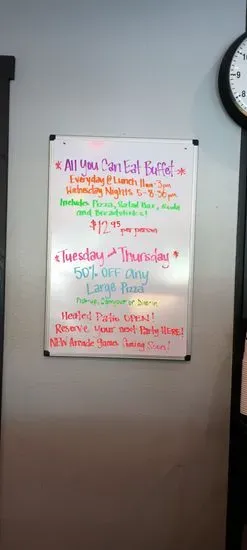 * All You Can Eat Buffet *
Everyday @ Lunch 11am-3pm
Wednesday Nights 5-8:30pm
Includes Pizza, Salad Bar, Soda
and Breadsticks!
$12.95 per person
* Tuesday and Thursday *
50% OFF Any
Large Pizza
Pick-up, Carryout or Dine-in
Heated Patio OPEN!
Reserve your next Party HERE!
NEW Arcade games Coming Soon!